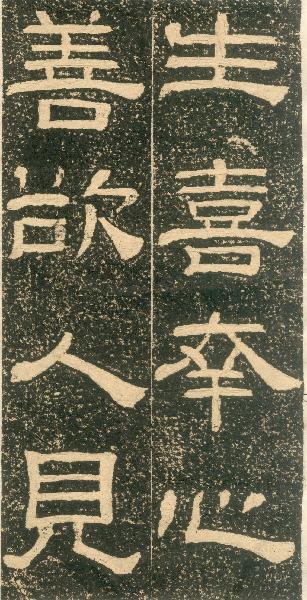 生喜幸心
善欲人見